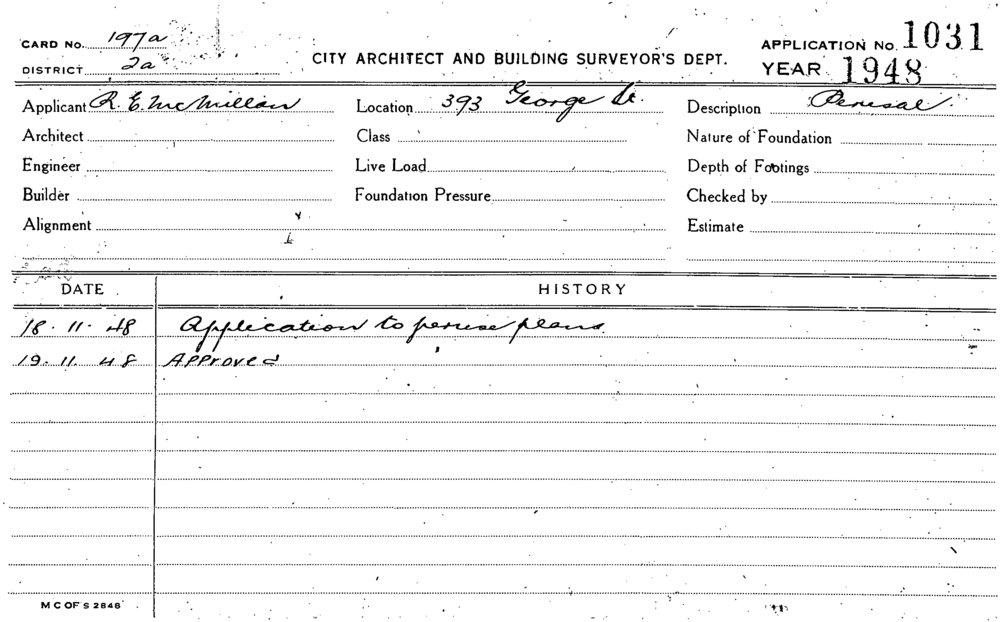 CARD No. 197a
DISTRICT 2a
CITY ARCHITECT AND BUILDING SURVEYOR'S DEPT.
APPLICATION No. 1031
YEAR 1948
Applicant R. E. McMillan Location 393 George St. Description Perusal
Architect Class Nature of Foundation
Engineer Live Load Depth of Footings
Builder Foundation Pressure Checked by
Alignment Estimate
DATE HISTORY
18.11.48 Application to peruse plans.
19.11.48 Approved
M C OF S 2848